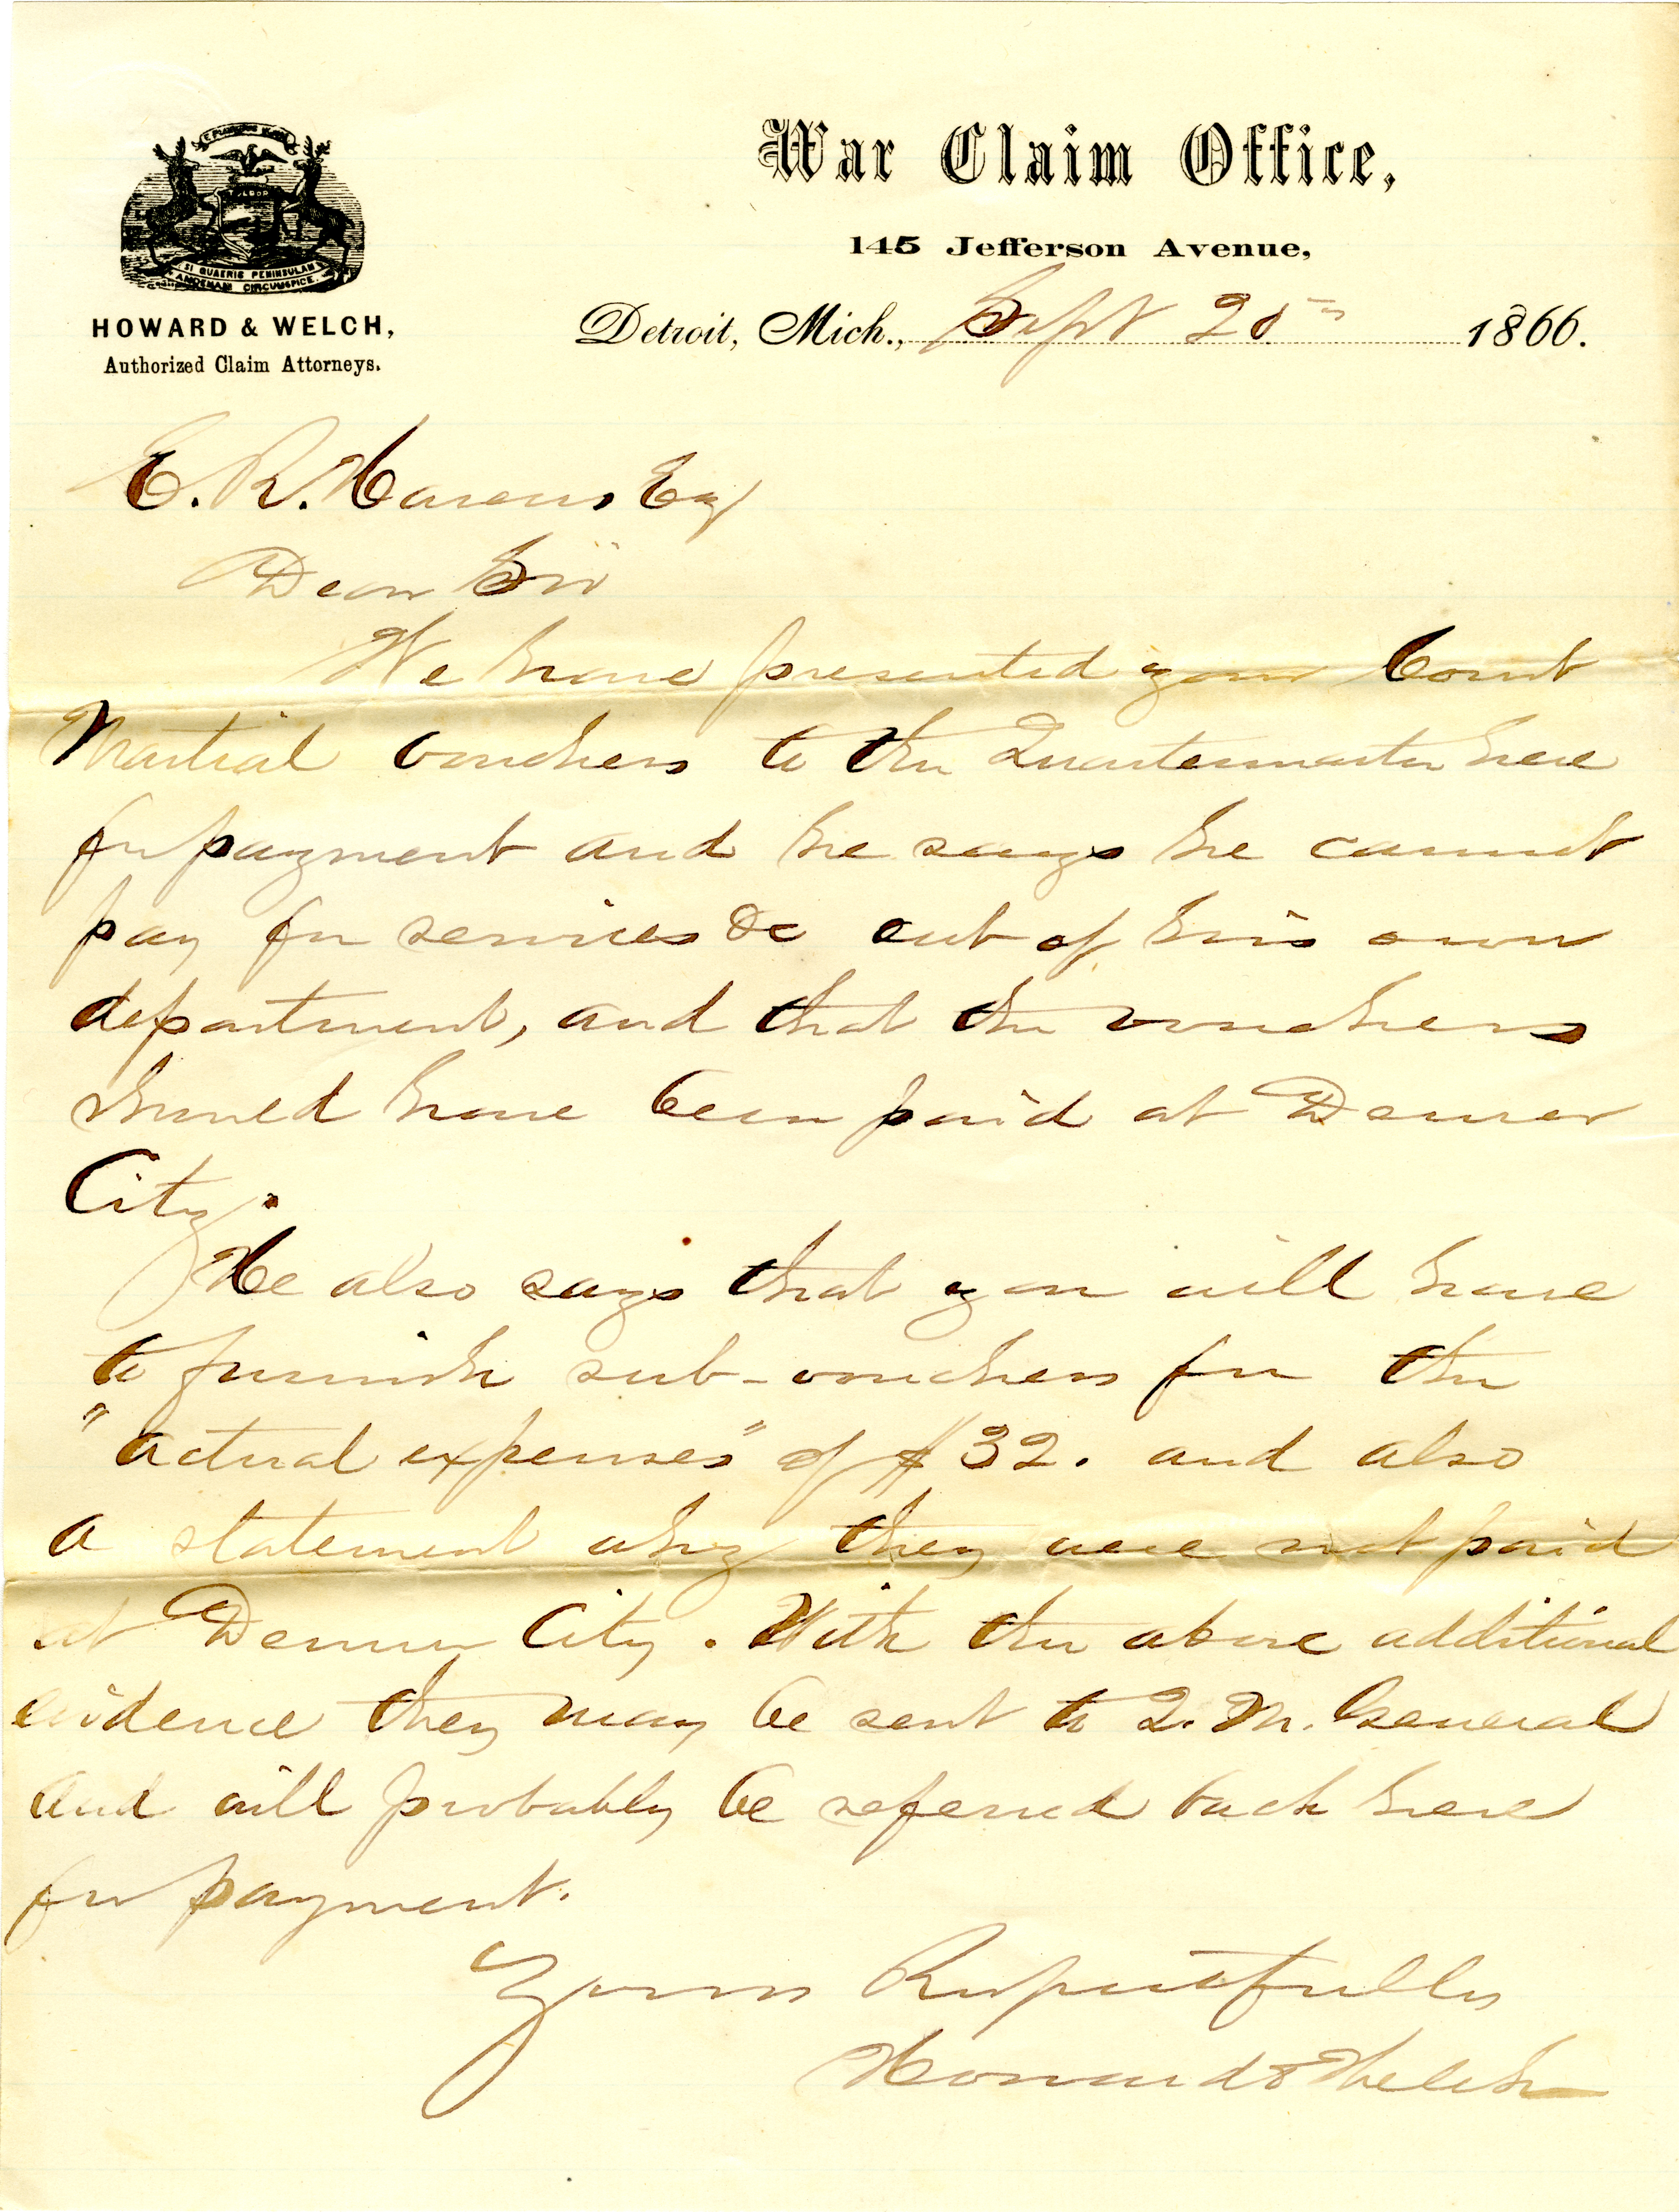 E PLURIBUS UNUM
TUEBOR
SI QUAERIS PENINSULAM
AMOENAM CIRCUMSPICE.
HOWARD & WELCH,
Authorized Claim Attorneys.
War Claim Office,
145 Jefferson Avenue,
Detroit, Mich., Sept 20th 1866.
E. R. Havens Esq
Dear Sir
We have presented your Court
Martial vouchers to the Quartermaster here
for payment and he says he cannot
pay for services &c out of his own
department, and that the vouchers
should have been paid at Denver
City.
He also says that you will have
to furnish sub-vouchers for the
"actual expenses" of $32. and also
a statement why they were not paid
at Denver City. With the above additional
evidence they may be sent to Q. M. General
and will probably be referred back here
for payment.
Yours Respectfully
Howard & Welch